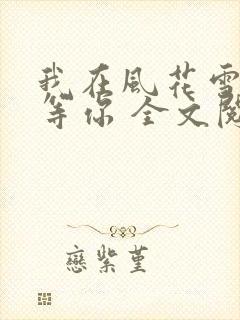 我在風花雪
等你 全文閱
戀紫堇